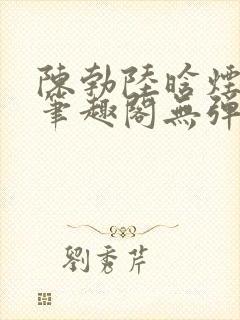 陳勃陸晗煙
筆趣閣無彈
劉秀芹